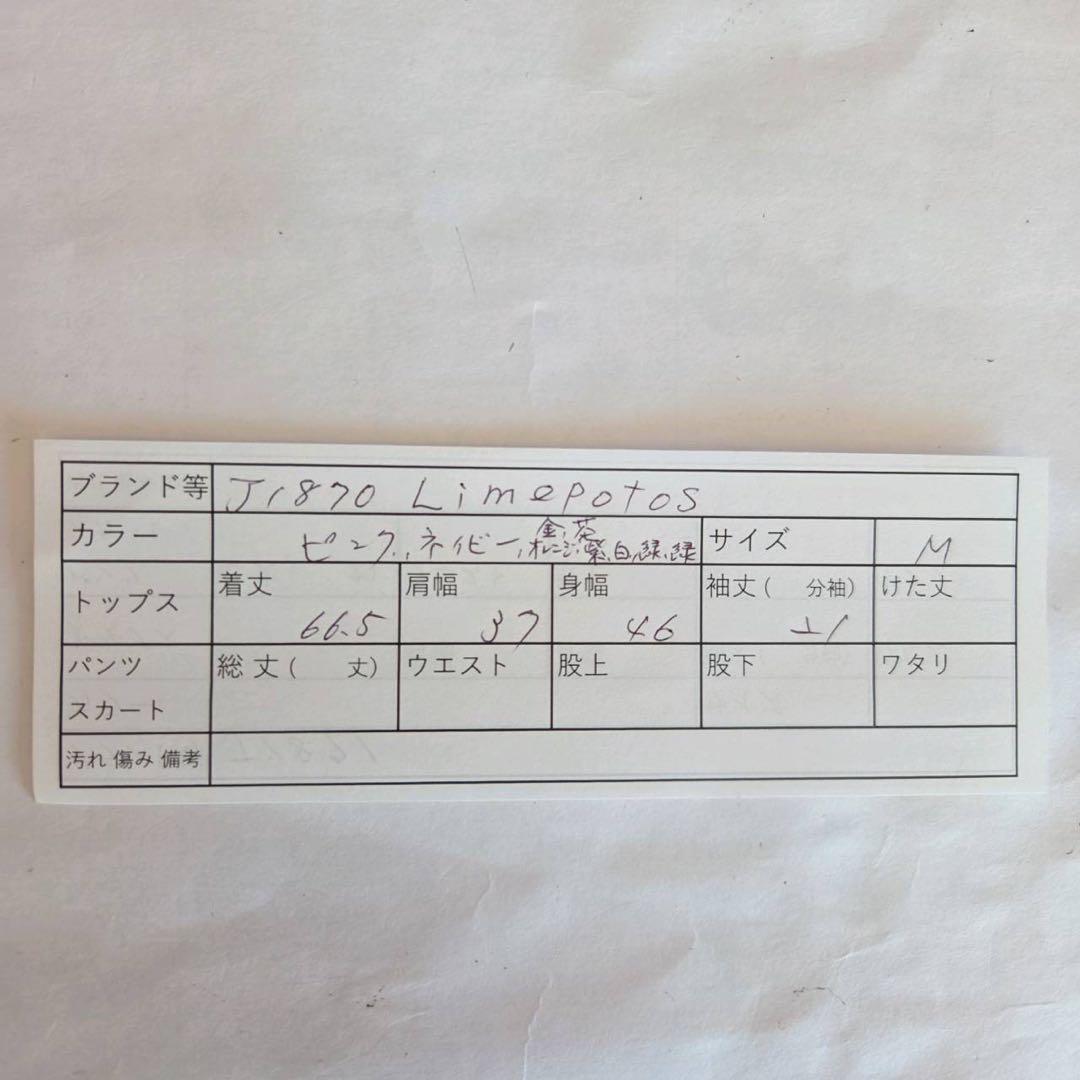 ブランド等 J1870 Limepotos
金、茶
カラー ピンク、ネイビー、オレンジ、紫、白、緑、緑 サイズ M
トップス 着丈 肩幅 身幅 袖丈( 分袖) けた丈
66.5 37 46
パンツ 総丈( 丈) ウエスト 股上 股下 ワタリ
スカート
汚れ 傷み 備考